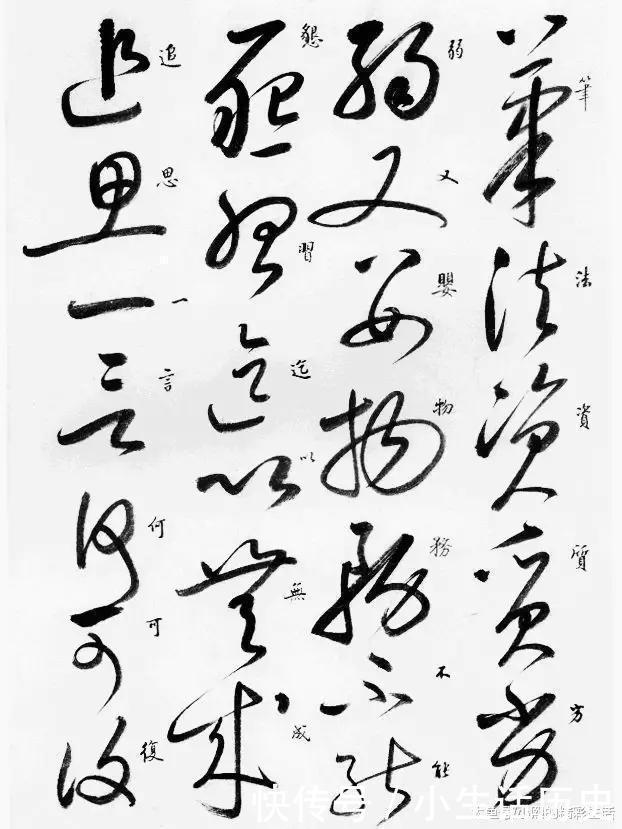 筆法資質劣
弱又嬰物務不能
懇習迄以無成
追思一言何可復
快传号 / 小生活历史